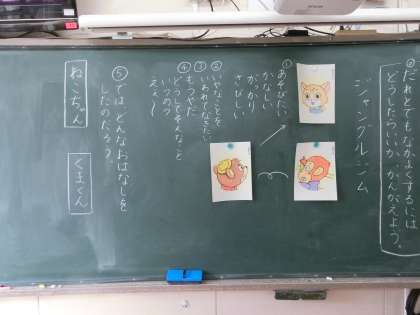 ◎だれとでもなかよくするには
どうしたらいいか、かんがえよう。
ジャングルジム
①
あそびたい
かなしい
がっかり
さびしい
②いやなことを
③いわれてなきたい
④もうやだ
どうしてそんなこと
いうの？
ええ〜
⑤では、どんなおはなしを
したのだろう？
ねこちゃん
くまくん